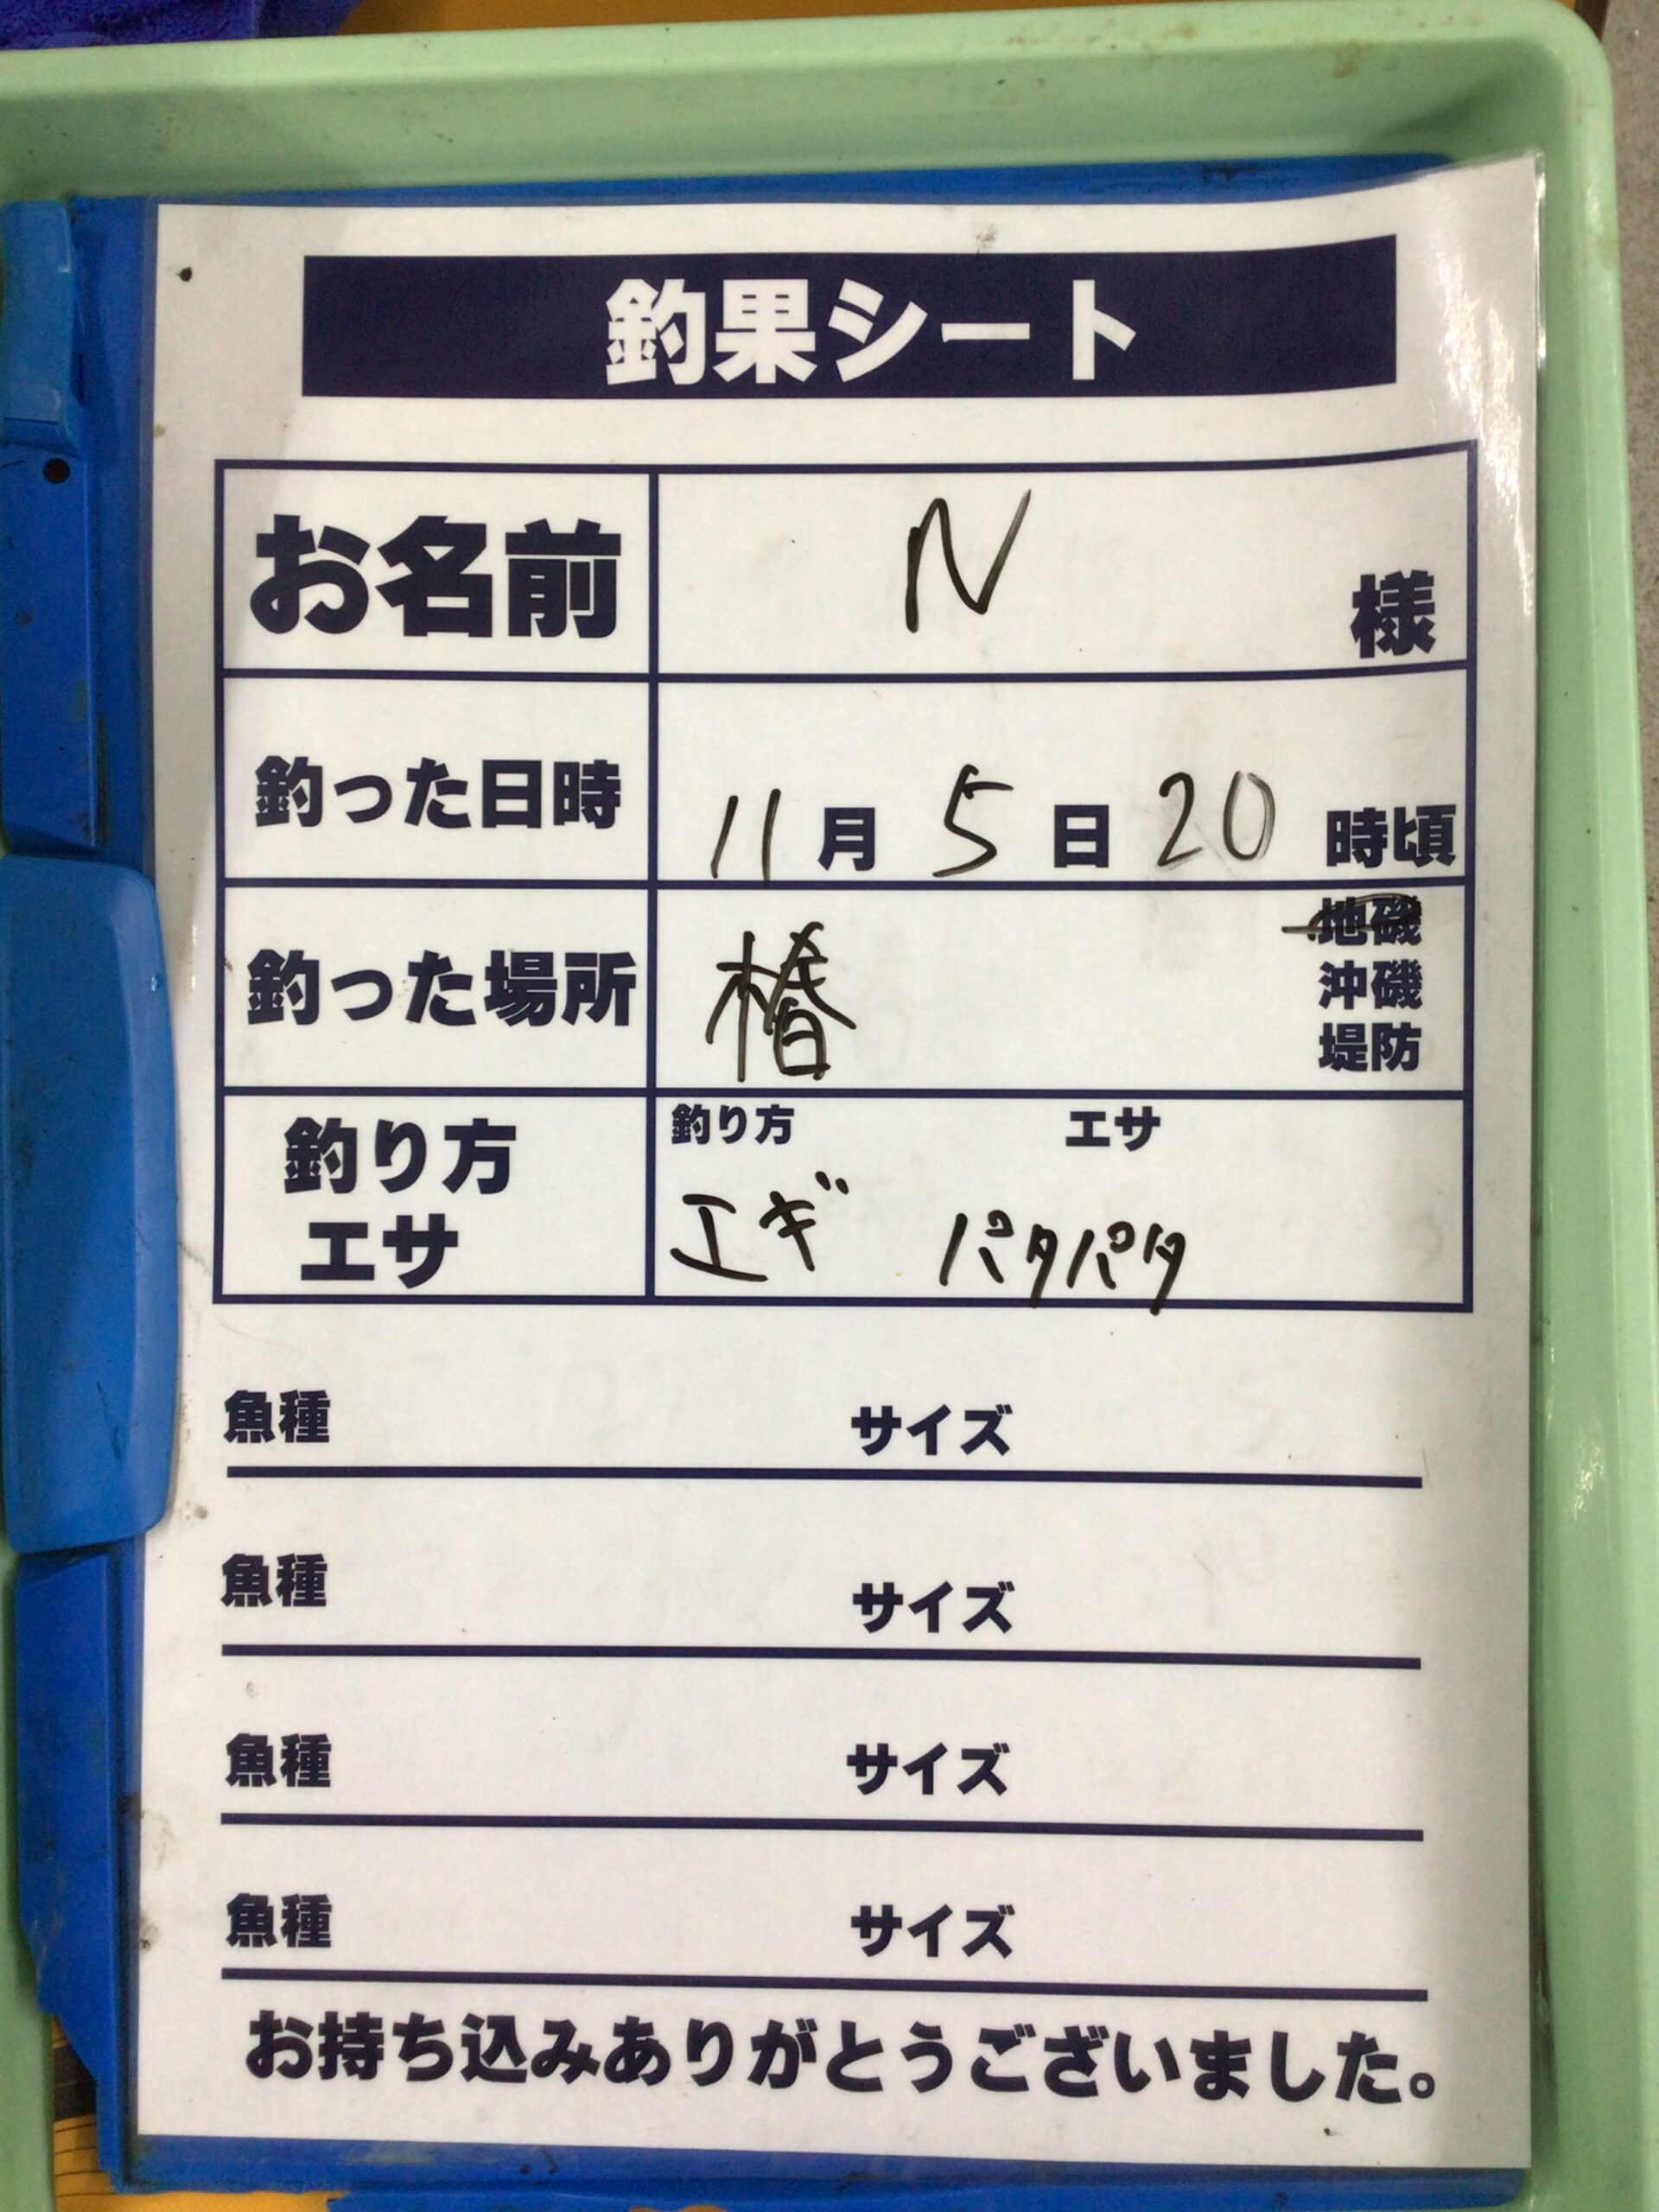 釣果シート
お名前 N 様
釣った日時 11月5日20時頃
釣った場所 椿 地磯
沖磯
堤防
釣り方 エサ
釣り方
エサ
エギ パタパタ
魚種 サイズ
魚種 サイズ
魚種 サイズ
魚種 サイズ
お持ち込みありがとうございました。